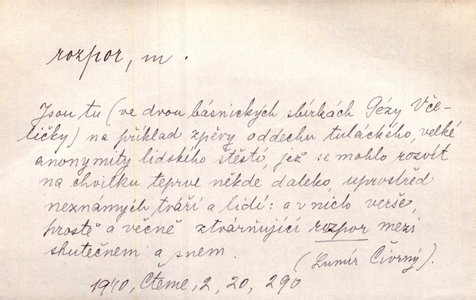 rozpor, m.
Jsou tu (ve dvou básnických sbírkách Gézy Vče-
ličky) na příklad zpěvy oddechu tuláckého, velké
anonymity lidského štěstí, jež se mohlo rozvít
na chvilku teprve někde daleko, uprostřed
neznámých tváří a lidí: a v nichž verše,
prostě a věčně ztvárňující rozpor mezi
skutečnem a snem. (Lumír Čivrný.)
1940, Čteme, 2, 20, 290